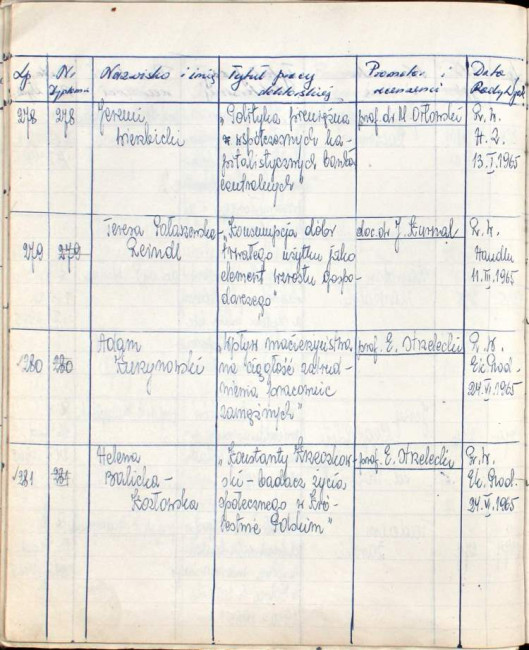 Lp. Nr dyplomu Nazwisko i imię Tytuł pracy doktorskiej Promotor i recenzenci Data Rady Wydz.
278 278 Jeremi Wierzbicki
„Polityka pieniężna
w współczesnych ka-
pitalistycznych banków
centralnych"
prof. dr M. Orłowski
R. W.
H. Z.
13.I.1965
279 279 Teresa Pałaszewska-
Reindl
„Konsumpcja dóbr
trwałego użytku jako
element wzrostu gospo-
darczego"
doc. dr J. Kurnal
R. W.
Handlu
11.III.1965
280 280 Adam
Kurzynowski
„Wpływ macierzyństwa
na ciągłość zatrud-
nienia pracownic
zamężnych"
prof. E. Strzelecki
R. W.
Ek. Prod.
24.VI.1965
281 281 Helena
Balicka-
Kozłowska
„Konstanty Krzeczkow-
ski - badacz życia
społecznego w Kró-
lestwie Polskim"
prof. E. Strzelecki
R. W.
Ek. Prod.
24.VI.1965